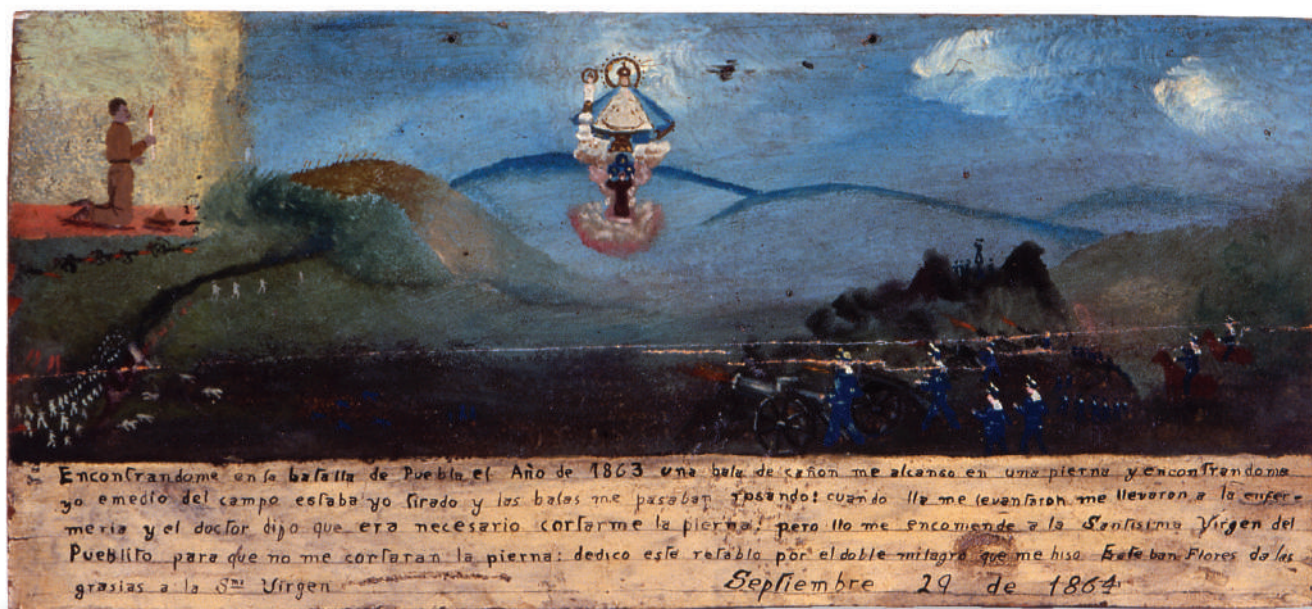 Encontrandome en la batalla de Puebla el Año de 1863 una bala de cañon me alcanso en una pierna y encontrandome
yo emedio del campo estaba yo tirado y las balas me pasaban rosando: cuando lla me levantaron me llevaron a la enfer-
meria y el doctor dijo que era necesario cortarme la pierna: pero llo me encomende a la Santisima Virgen del
Pueblito para que no me cortaran la pierna: dedico este retablo por el doble milagro que me hiso Esteban Flores da las
grasias a la Sma Virgen Septiembre 29 de 1864